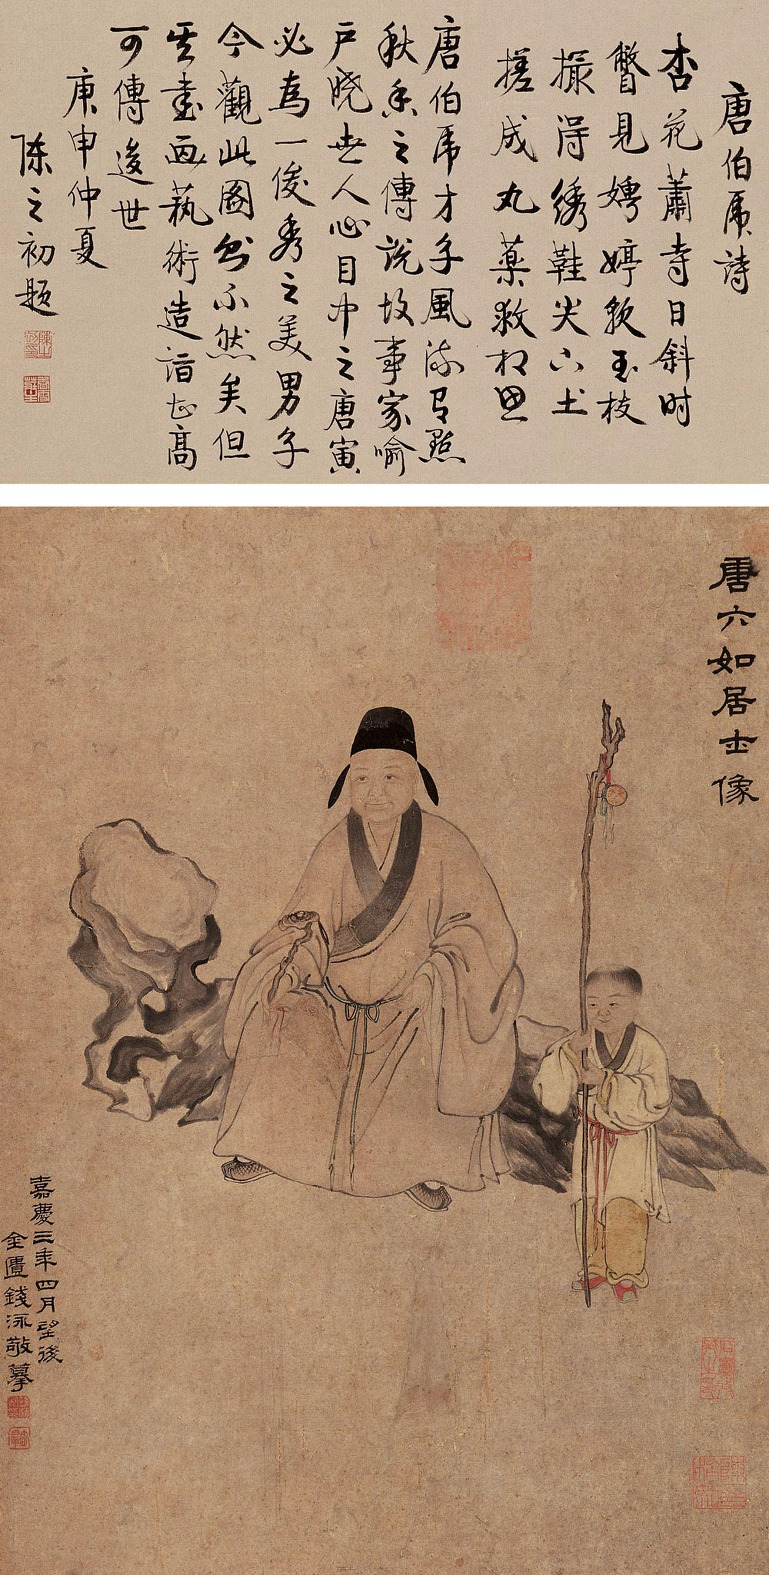 唐伯虎詩
杏花蕭寺日斜时
瞥見娉婷軟玉枝
撮得绣鞋尖下土
搓成丸藥救相思
唐伯虎才子風流有點
秋香之傳說故事家喻
户晓世人心目中之唐寅
必為一俊秀之美男子
今觀此圖知不然矣但
其書画執術造詣甚高
可傳後世
庚申仲夏
陈之初题
唐六如居士像
嘉慶三年四月望後
金匱錢泳敬摹